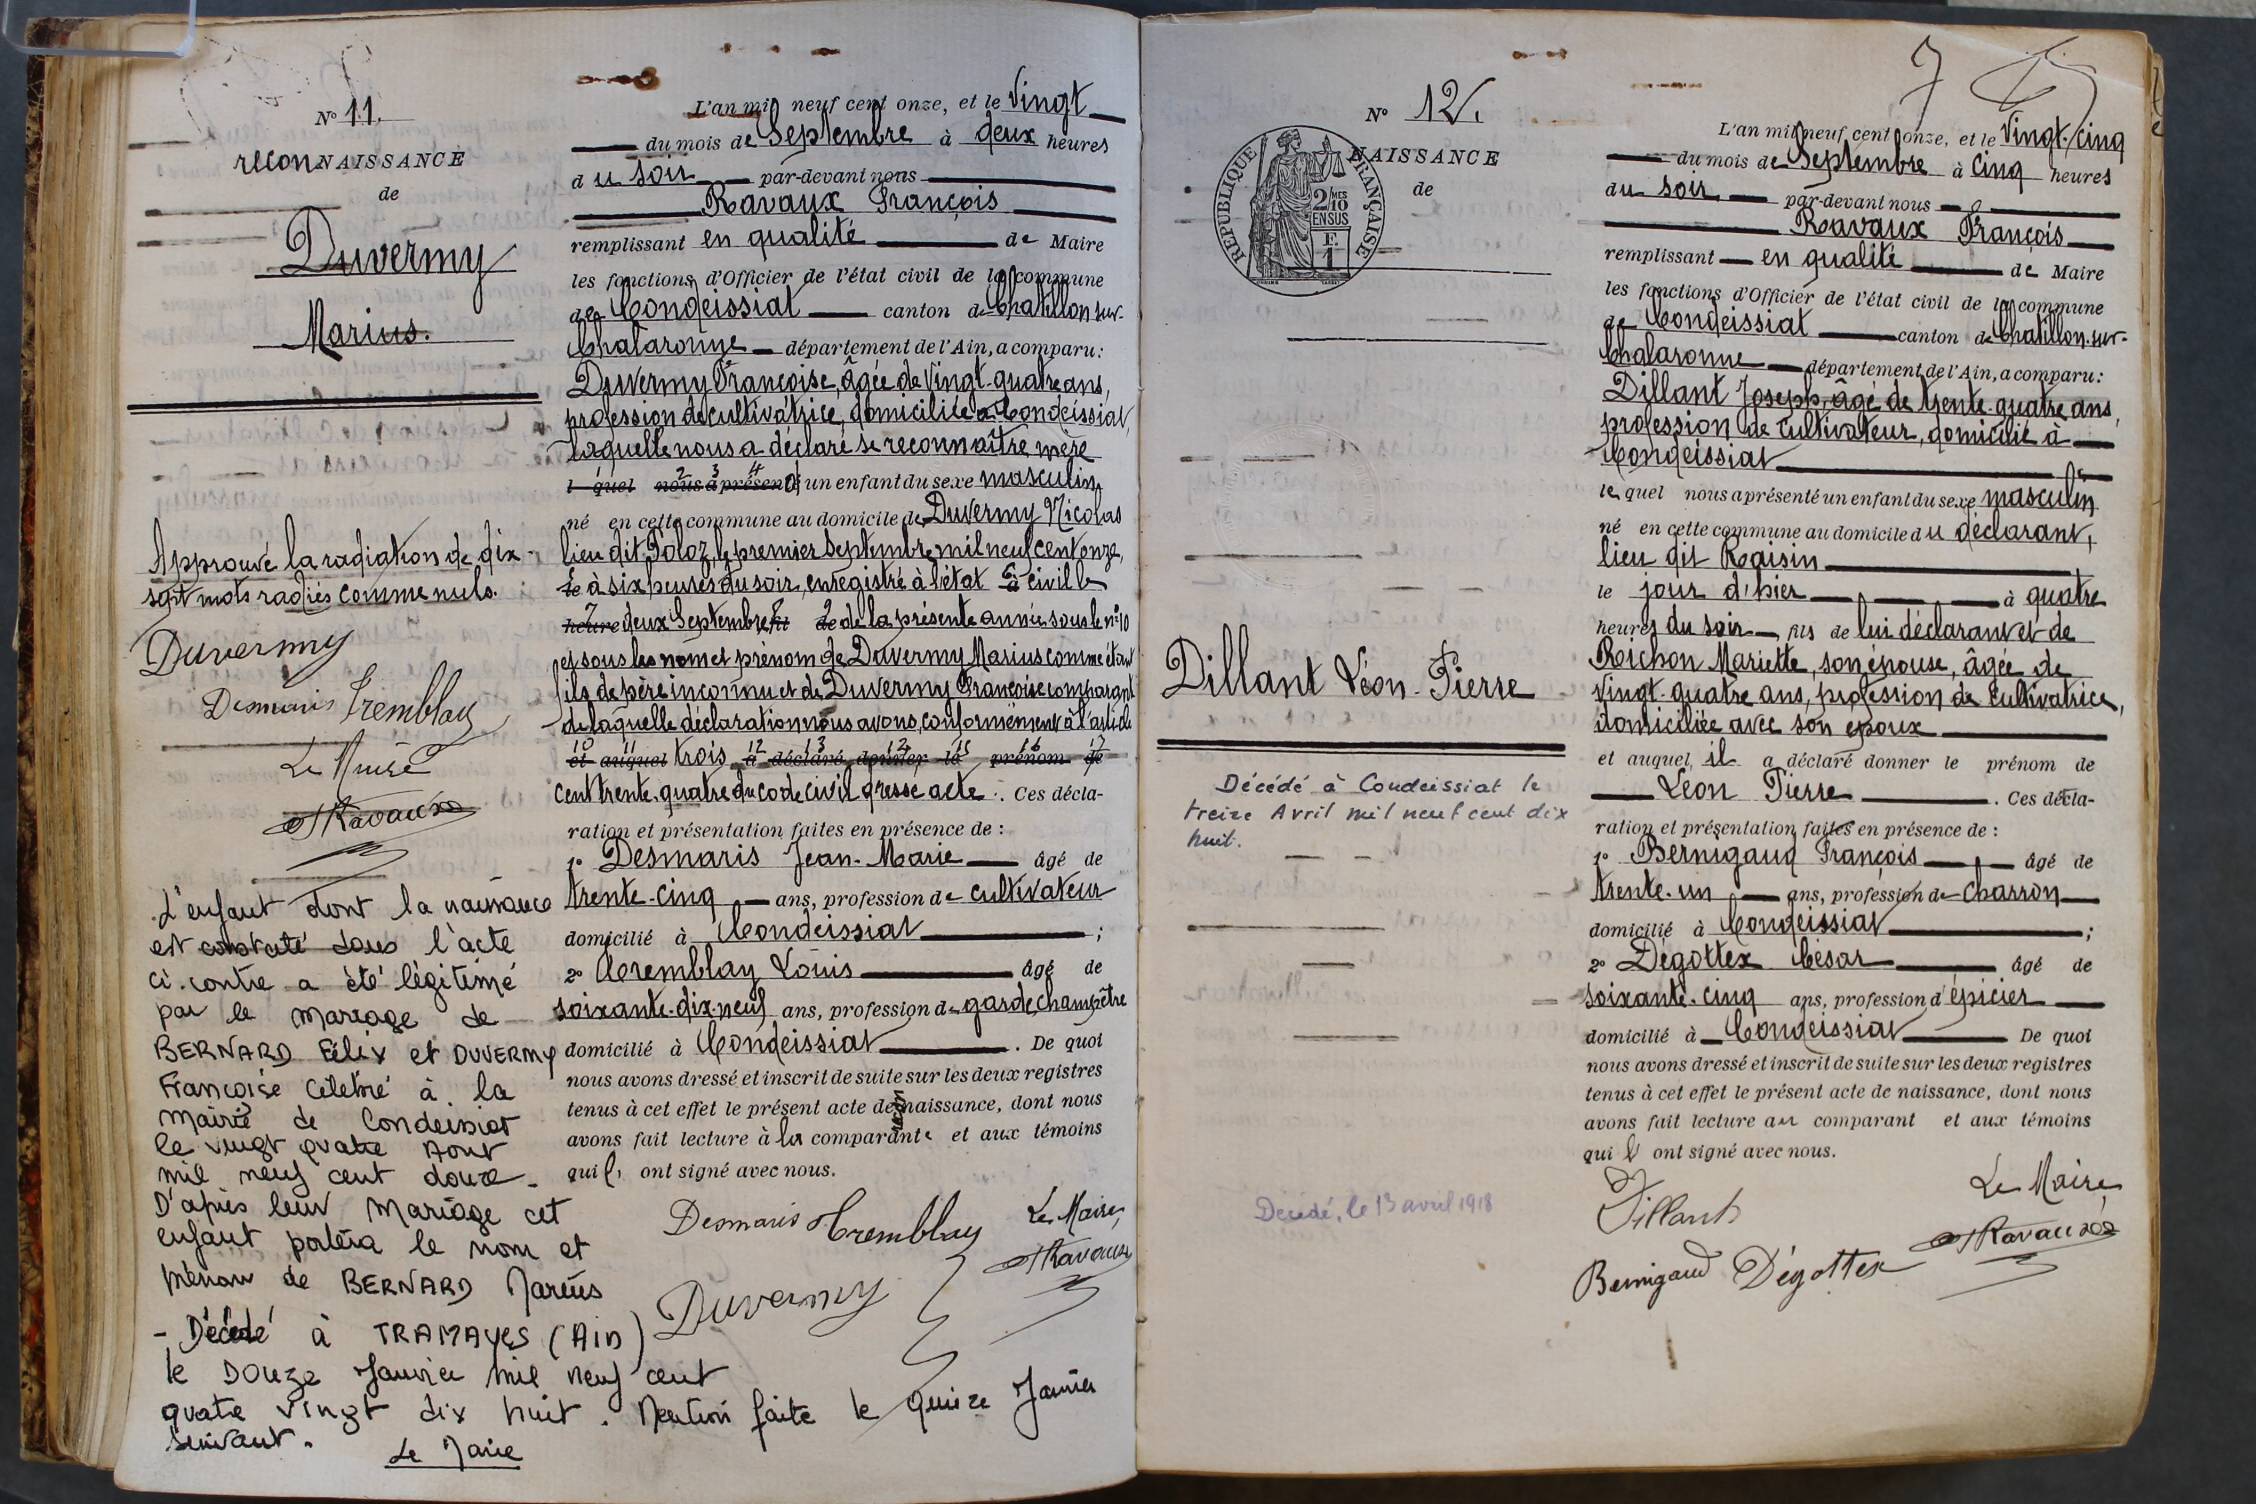 N° 11.
reconNAISSANCE
de
Duvermy
Marius.
Approuvé la radiation de dix-
sept mots radiés comme nuls.
Duvermy
Desmaris Tremblay
Le Maire
Ravaux
L'enfant dont la naissance
est constaté dans l'acte
ci-contre a été légitimé
par le mariage de
BERNARD Félix et DUVERMY
Françoise célébré à la
mairie de Condeissiat
le vingt quatre Aout
mil neuf cent douze.
D'après leur mariage cet
enfant portera le nom et
prénom de BERNARD Marius
- Décédé à TRAMAYES (AIN)
le DOUZE Janvier mil neuf cent
quatre vingt dix huit. Mention faite le quinze Janvier
suivant.
Le Maire
L'an mil neuf cent onze, et le Vingt
du mois de Septembre à deux heures
du soir par-devant nous
Ravaux François
remplissant en qualité de Maire
les fonctions d'Officier de l'état civil de la commune
de Condeissiat canton de Chatillon-sur-
Chalaronne département de l'Ain, a comparu:
Duvermy Françoise, âgée de Vingt-quatre ans,
profession de cultivatrice, domiciliée à Condeissiat,
laquelle nous a déclaré se reconnaître mère
l quel nous a présenté d'un enfant du sexe masculin
né en cette commune au domicile de Duvermy Nicolas
lieu dit Poloz, le premier Septembre mil neuf cent onze,
le à six heures du soir, enregistré à l'état à civil le
heure deux Septembre fil de de la présente année sous le n° 10
et sous les nom et prénom de Duvermy Marius comme étant
fils de père inconnu et de Duvermy Françoise comparant
de laquelle déclaration nous avons, conformément à l'article
et auquel trois a déclaré donner le prénom de
cent trente-quatre du code civil dressé acte. Ces décla-
ration et présentation faites en présence de :
1° Desmaris Jean-Marie âgé de
trente-cinq ans, profession de cultivateur
domicilié à Condeissiat ;
2° Tremblay Louis âgé de
soixante-dix-neuf ans, profession de garde champêtre
domicilié à Condeissiat. De quoi
nous avons dressé et inscrit de suite sur les deux registres
tenus à cet effet le présent acte de reconnaissance, dont nous
avons fait lecture à la comparante et aux témoins
qui ont signé avec nous.
Desmaris Tremblay
Le Maire,
Ravaux
Duvermy
7
N° 12.
NAISSANCE
de
REPUBLIQUE FRANÇAISE
2/10 MES
EN SUS
F.
1
Dillant Léon-Pierre
Décédé à Condeissiat le
treize Avril mil neuf cent dix
huit.
Décédé, le 13 avril 1918
L'an mil neuf cent onze, et le Vingt-cinq
du mois de Septembre à Cinq heures
du soir par-devant nous
Ravaux François
remplissant en qualité de Maire
les fonctions d'Officier de l'état civil de la commune
de Condeissiat canton de Chatillon-sur-
Chalaronne département de l'Ain, a comparu:
Dillant Joseph, âgé de trente-quatre ans,
profession de cultivateur, domicilié à
Condeissiat
lequel nous a présenté un enfant du sexe masculin
né en cette commune au domicile du déclarant,
lieu dit Raisin
le jour d'hier à quatre
heures du soir fils de lui déclarant et de
Richon Mariette, son épouse, âgée de
vingt-quatre ans, profession de cultivatrice,
domiciliée avec son époux
et auquel il a déclaré donner le prénom de
Léon Pierre. Ces décla-
ration et présentation faites en présence de :
1° Bernigaud François âgé de
trente-un ans, profession de charron
domicilié à Condeissiat ;
2° Dégottex César âgé de
soixante-cinq ans, profession d'épicier
domicilié à Condeissiat De quoi
nous avons dressé et inscrit de suite sur les deux registres
tenus à cet effet le présent acte de naissance, dont nous
avons fait lecture au comparant et aux témoins
qui ont signé avec nous.
Dillant
Le Maire,
Bernigaud Dégottex
Ravaux